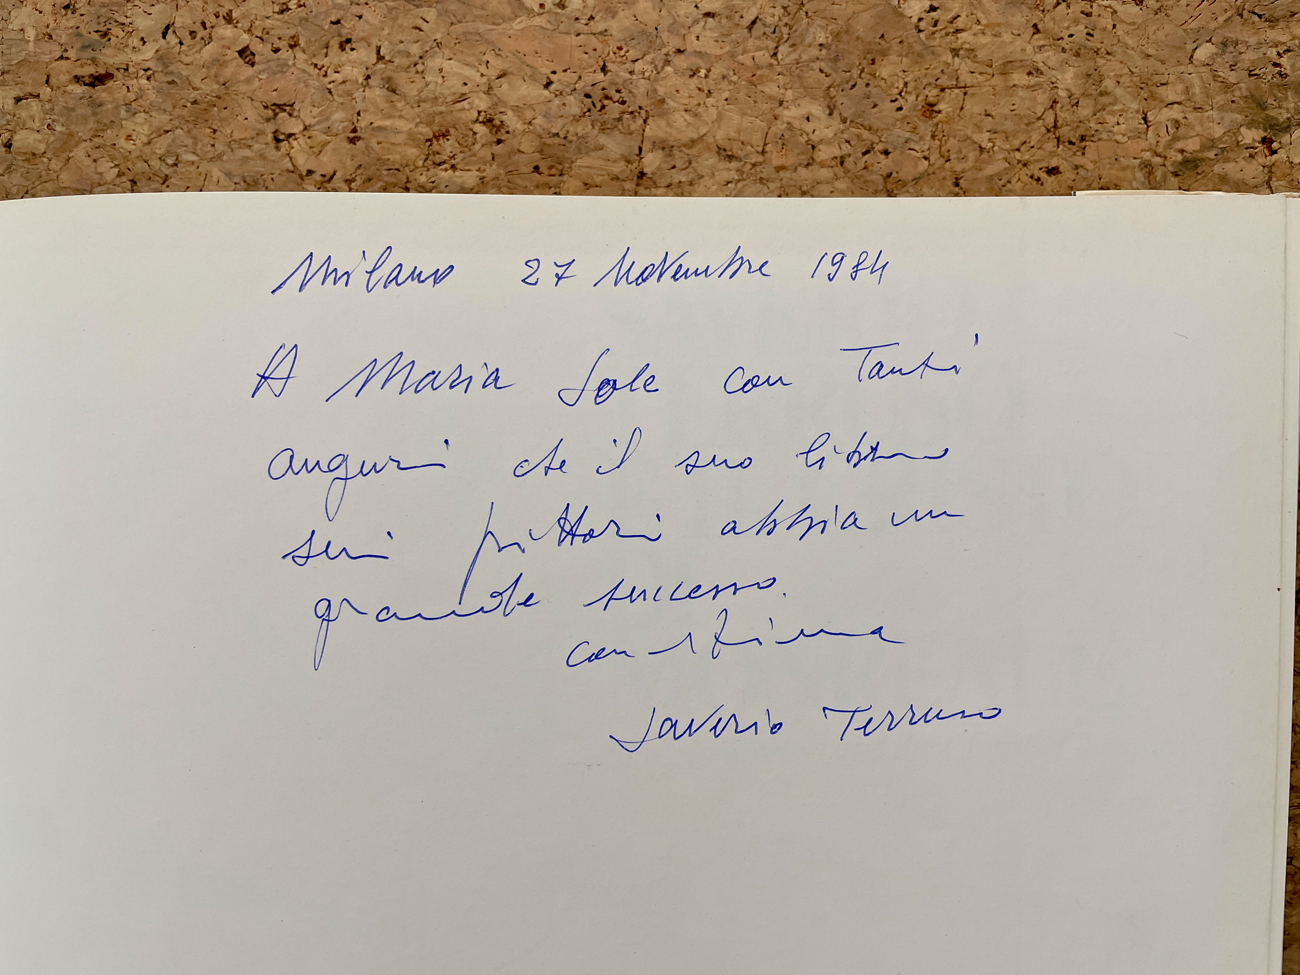 Milano 27 Novembre 1984
A Maria Sole con Tanti
auguri che il suo libro
sui pittori abbia un
grande successo.
con stima
Saverio Terruso